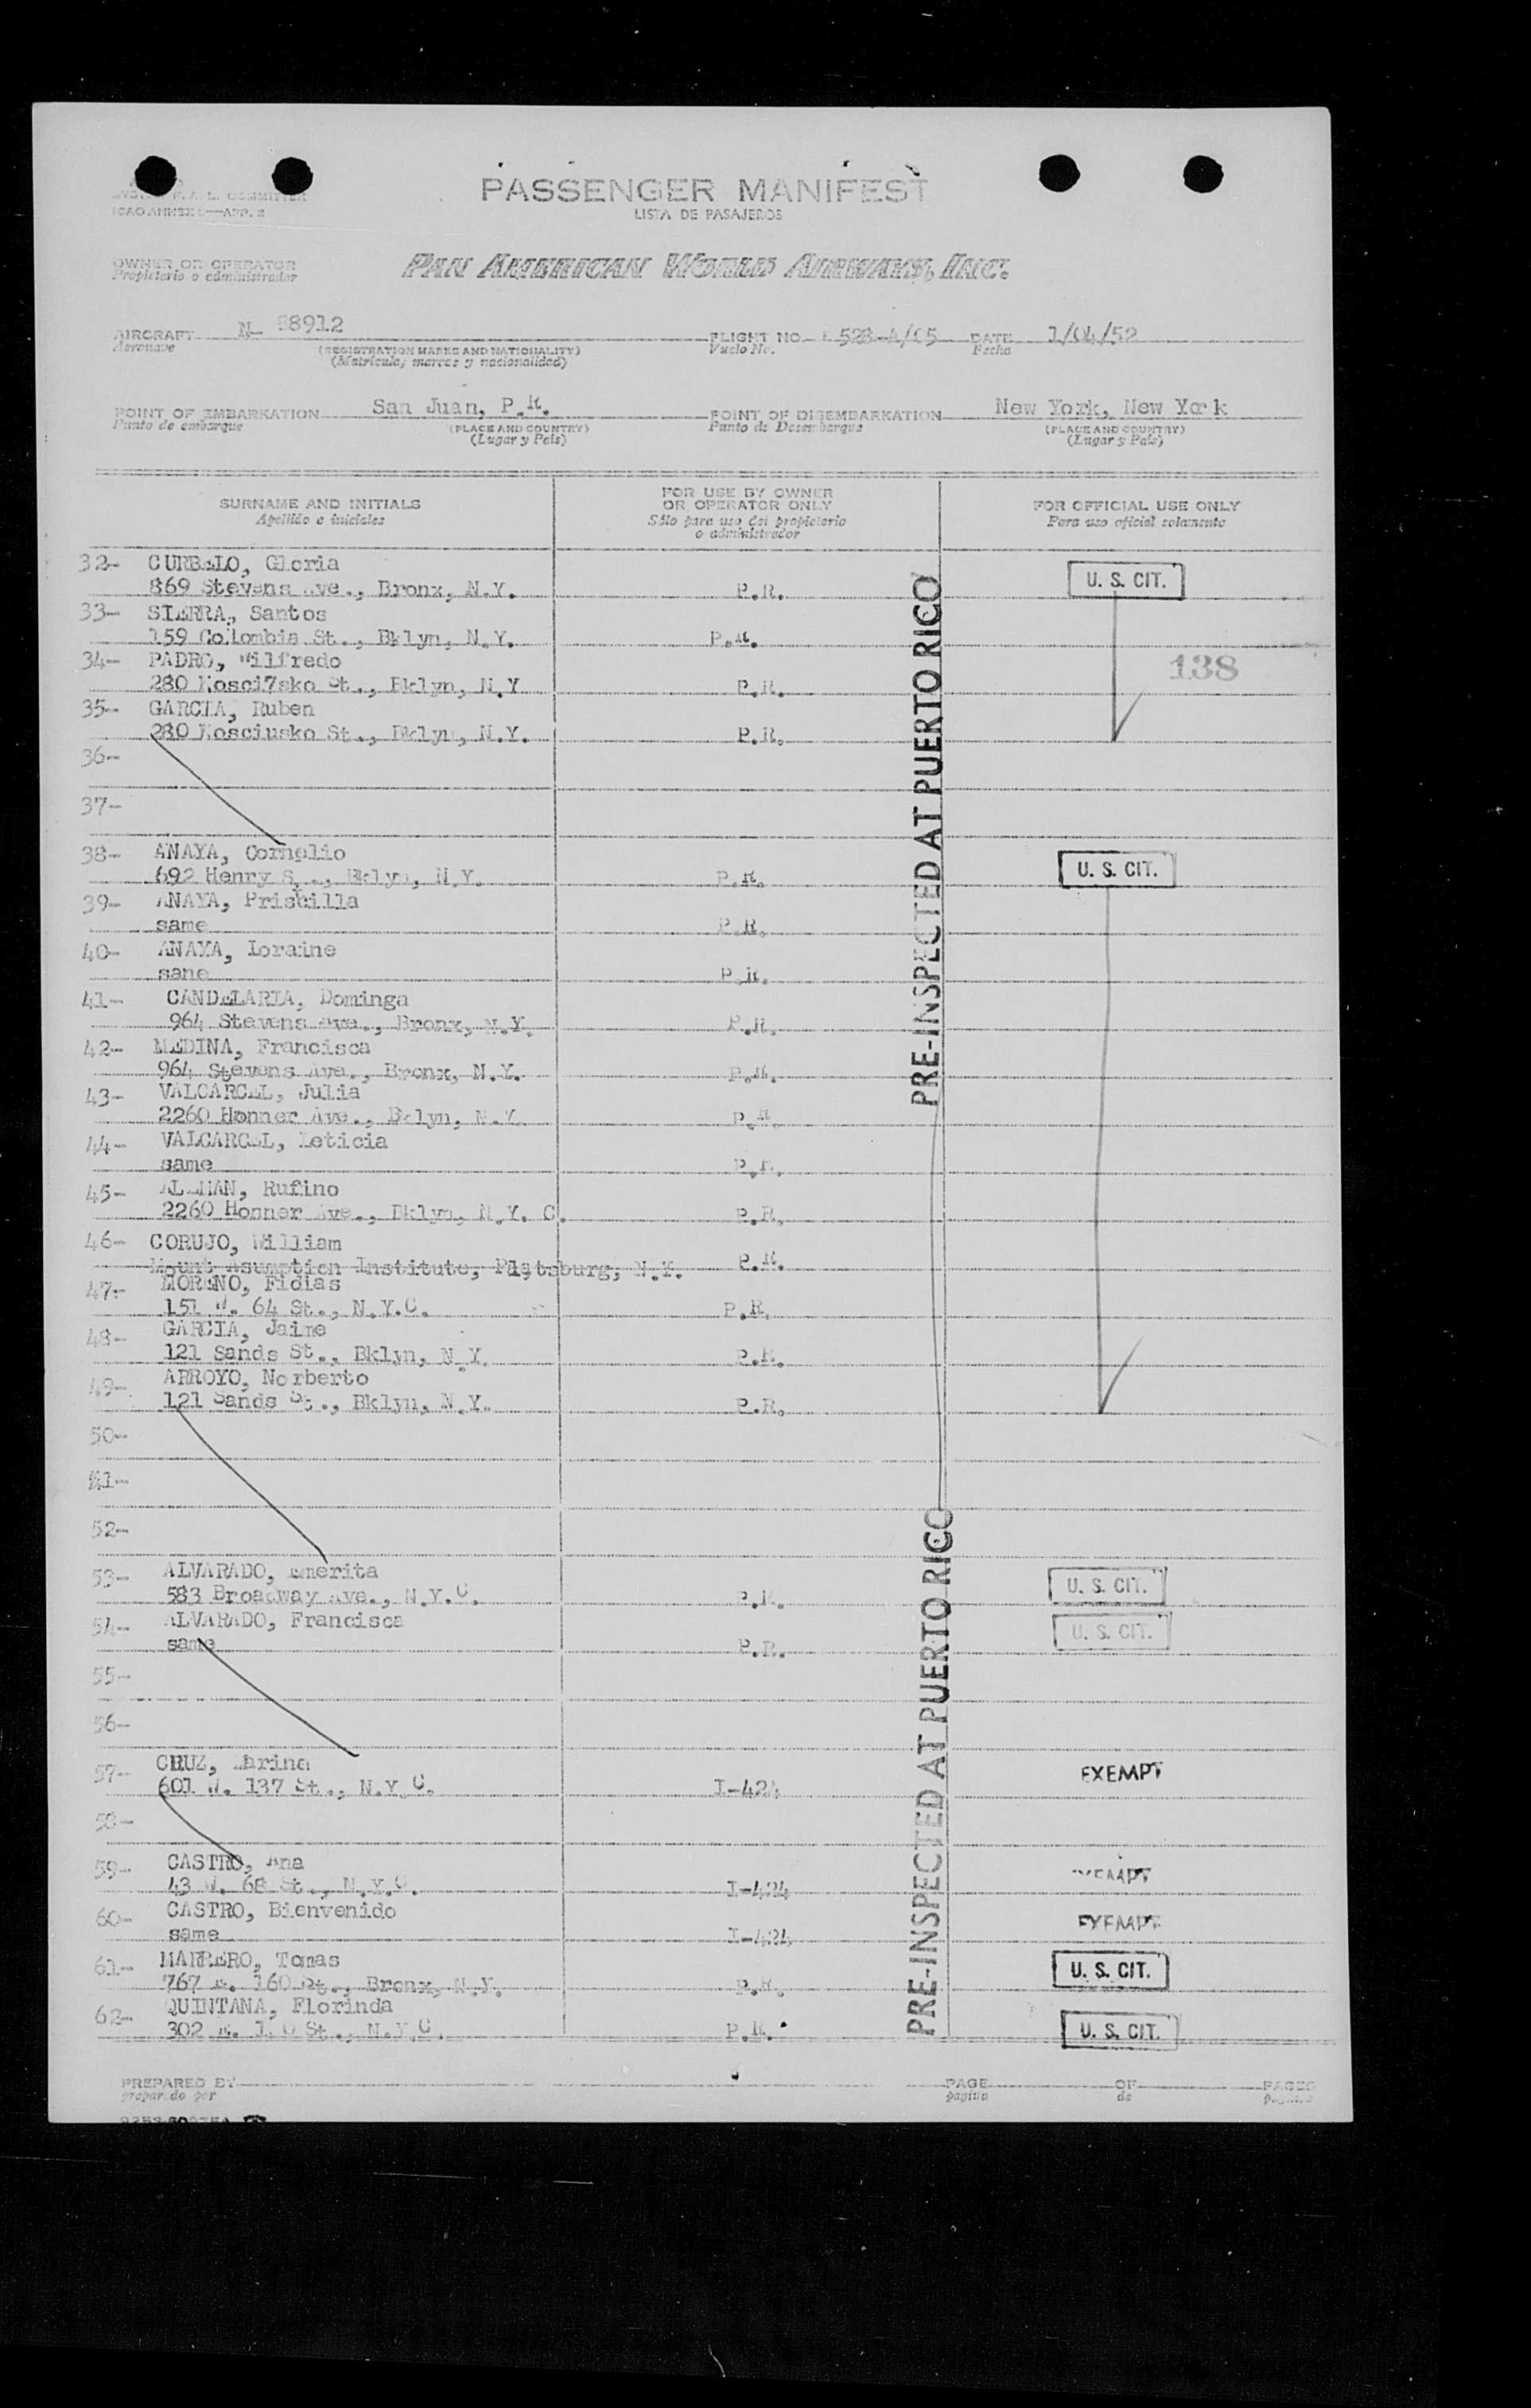 ICAO ANNEX 9—APP. 2
PASSENGER MANIFEST
LISTA DE PASAJEROS
OWNER OR OPERATOR
Propietario o administrador
PAN AMERICAN WORLD AIRWAYS, INC.
AIRCRAFT N- 88912 FLIGHT NO. 528-A/05 DATE 1/04/52
Aeronave (REGISTRATION MARKS AND NATIONALITY) Vuelo No. Fecha
(Matricula, marcas y nacionalidad)
POINT OF EMBARKATION San Juan, P.R. POINT OF DISEMBARKATION New York, New York
Punto de embarque (PLACE AND COUNTRY) Punto de Desembarque (PLACE AND COUNTRY)
(Lugar y País) (Lugar y País)
SURNAME AND INITIALS FOR USE BY OWNER OR OPERATOR ONLY FOR OFFICIAL USE ONLY
Apellido e iniciales Sólo para uso del propietario o administrador Para uso oficial solamente
32- CURBELO, Gloria
869 Stevens Ave., Bronx, N.Y. P.R. U. S. CIT.
33- SIERRA, Santos
159 Collombia St., Bklyn, N.Y. P.R.
34- PADRO, Wilfredo 138
280 Kosci7sko St., Bklyn, N.Y P.R.
35- GARCIA, Ruben
280 Kosciusko St., Bklyn, N.Y. P.R.
36-
37-
38- ANAYA, Cornelio
692 Henry St., Bklyn, N.Y. P.R. U. S. CIT.
39- ANAYA, Priscilla
same P.R.
40- ANAYA, Loraine
sane P.R.
41- CANDELARIA, Dominga
964 Stevens Ave., Bronx, N.Y. P.R.
42- MEDINA, Francisca
964 Stevens Ave., Bronx, N.Y. P.R.
43- VALCARCEL, Julia
2260 Honner Ave., Bklyn, N.Y. P.R.
44- VALCARCEL, Leticia
same P.R.
45- ALEMAN, Rufino
2260 Honner Ave., Bklyn, N.Y. C. P.R.
46- CORUJO, William
Mount Asumption Institute, Platsburg, N.Y. P.R.
47- MORENO, Fidias
151 W. 64 St., N.Y.C. P.R.
48- GARCIA, Jaime
121 Sands St., Bklyn, N.Y. P.R.
49- ARROYO, Norberto
121 Sands St., Bklyn, N.Y. P.R.
50-
51-
52-
53- ALVARADO, Emerita
583 Broadway Ave., N.Y.C. P.R. U. S. CIT.
54- ALVARADO, Francisca
same P.R. U. S. CIT.
55-
56-
57- CRUZ, Marina
601 W. 137 St., N.Y.C. I-424 EXEMPT
58-
59- CASTRO, Ana
43 W. 68 St., N.Y.C. I-424 EXEMPT
60- CASTRO, Bienvenido
same I-424 EXEMPT
61- MARRERO, Tomas
767 E. 160 St., Bronx, N.Y. P.R. U. S. CIT.
62- QUINTANA, Florinda
302 E. St., N.Y.C. P.R. U. S. CIT.
PRE-INSPECTED AT PUERTO RICO
PRE-INSPECTED AT PUERTO RICO
PREPARED BY PAGE OF PAGES
preparado por pagina de paginas